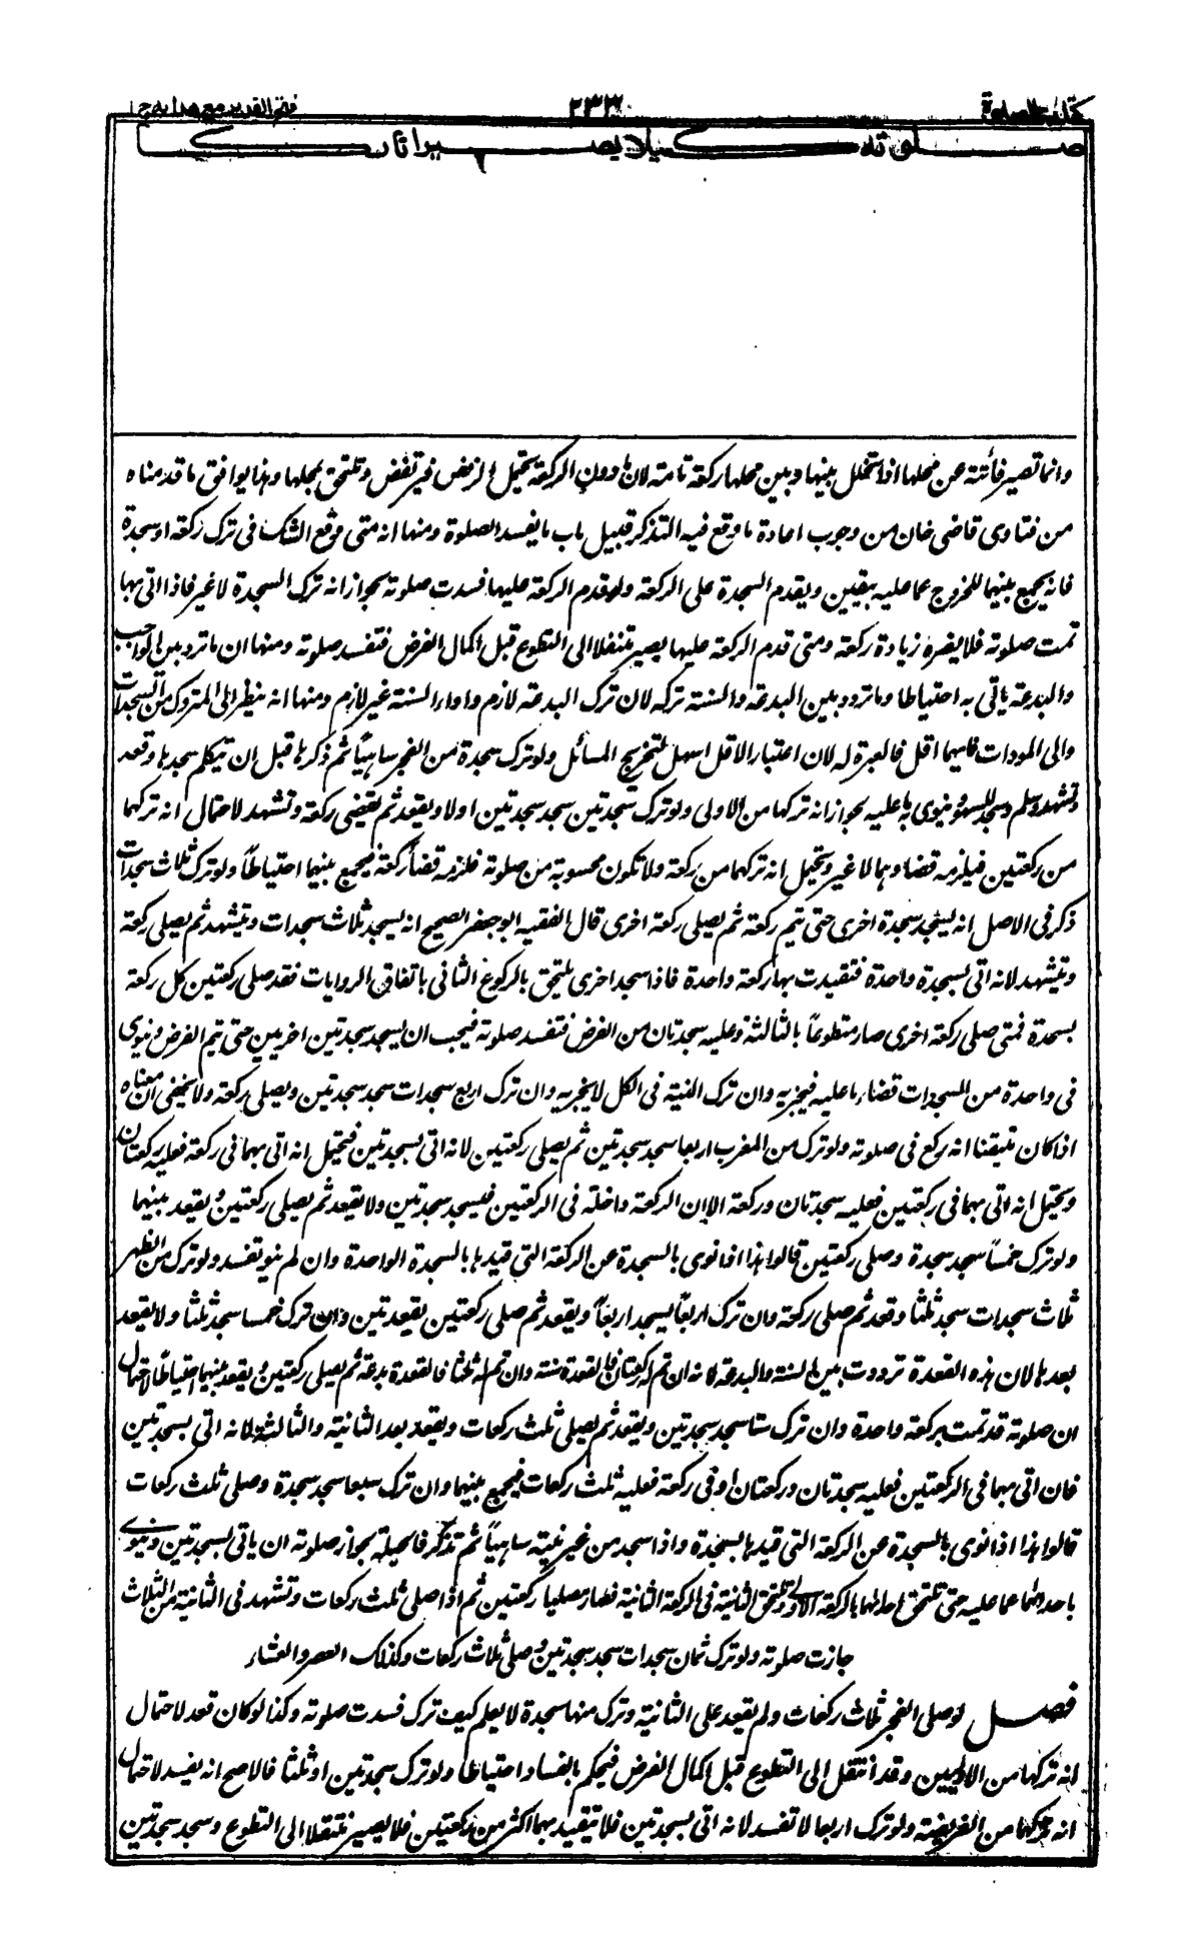 كتاب الصلوة
٢٣٣
فتح القدير مع هدايه ج ١
صلوته كيلا يصير اتاركا
وانما تصير فائتة عن محلها اذا تخلل بينها وبين محلها ركعة تامة لان ما دون الركعة يحتمل الرفض فيرتفض وتلتحق بمحلها وهذا يوافق ما قدمناه
من فتاوى قاضى خان من وجوب اعادة ما وقع فيه التذكر قبيل باب ما يفسد الصلوة ومنها انه متى وقع الشك فى ترك ركعة او سجدة
فانه يجمع بينهما للخروج عما عليه بيقين ويقدم السجدة على الركعة ولو قدم الركعة عليها فسدت صلوته بجواز انه ترك السجدة لا غير فاذا اتى بها
تمت صلوته فلا يضره زيادة ركعة ومتى قدم الركعة عليها يصير متنفلا الى التطوع قبل اكمال الفرض فتفسد صلوته ومنها ان ما تردد بين الواجب
والبدعة ياتى به احتياطا وما تردد بين البدعة والسنة تركه لان ترك البدعة لازم واداء السنة غير لازم ومنها انه ينظر الى المتروك من السجدات
والى المودات فايهما اقل فالعبرة له لان اعتبار الاقل اسهل لتخريج المسائل ولو ترك سجدة من الفجر ساهيا ثم ذكرها قبل ان يتكلم سجدها وقعد
وتشهد وسلم وسجد للسهو وينوى ما عليه بجواز انه تركها من الاولى ولو ترك سجدتين سجد سجدتين اولا ويقعد ثم يقضى ركعة وتشهد لاحتمال انه تركهما
من ركعتين فيلزمه قضاوهما لا غير ويحتمل انه تركهما من ركعة ولا تكون محسوبة من صلوته فلزمه قضاء ركعة فيجمع بينهما احتياطاً ولو ترك ثلاث سجدات
ذكر فى الاصل انه يسجد سجدة اخرى حتى تتم ركعة ثم يصلى ركعة اخرى قال الفقيه ابو جعفر الصحيح انه يسجد ثلاث سجدات ويتشهد ثم يصلى ركعة
ويتشهد لانه اتى بسجدة واحدة فتقيدت بها ركعة واحدة فاذا سجد اخرى يلتحق بالركوع الثانى باتفاق الروايات فقد صلى ركعتين كل ركعة
بسجدة فمتى صلى ركعة اخرى صار متطوعاً بالثالثة وعليه سجدتان من الفرض فتفسد صلوته فيجب ان يسجد سجدتين اخريين حتى يتم الفرض وينوى
فى واحدة من السجدات قضاء ما عليه فيجزيه وان ترك النية فى الكل لا يجزيه وان ترك اربع سجدات سجد سجدتين ويصلى ركعة ولا يخفى ان معناه
اذا كان متيقنا انه ركع فى صلوته ولو ترك من المغرب اربعا سجد سجدتين ثم يصلى ركعتين لانه اتى بسجدتين فيحتمل انه اتى بهما فى ركعة فعليه ركعتان
ويحتمل انه اتى بهما فى ركعتين فعليه سجدتان وركعة الا ان الركعة داخلة فى الركعتين فيسجد سجدتين ولا يقعد ثم يصلى ركعتين ويقعد بينهما
ولو ترك خمساً سجد سجدة وصلى ركعتين قالوا هذا اذا نوى بالسجدة عن الركعة التى قيدها بالسجدة الواحدة وان لم ينو تفسد ولو ترك من الظهر
ثلاث سجدات سجد ثلثا وقعد ثم صلى ركعة وان ترك اربعاً يسجد اربعاً ويقعد ثم صلى ركعتين يقعدتين وان ترك خمسا سجد ثلثا ولا يقعد
بعدها لان هذه القعدة ترددت بين السنة والبدعة لانه ان تم له ركعتان فالقعدة سنة وان تم له ثلثا فالقعدة بدعة ثم يصلى ركعتين ويقعد بينهما احتياطاً لاحتمال
ان صلوته قد تمت بركعة واحدة وان ترك ستا سجد سجدتين ويقعد ثم يصلى ثلث ركعات ويقعد بعد الثانية والثالثة لانه اتى بسجدتين
فان اتى بهما فى الركعتين فعليه سجدتان وركعتان او فى ركعة فعليه ثلث ركعات فيجمع بينهما وان ترك سبعا سجد سجدة وصلى ثلث ركعات
قالوا هذا اذا نوى بالسجدة عن الركعة التى قيدها بسجدة واذا سجد من غير نية ساهياً ثم تذكر فالحيلة بجواز صلوته ان ياتى بسجدتين وينوى
باحدهما عما عليه حتى تلتحق احدهما بالركعة الاولى وتلتحق الثانية فى الركعة الثانية فصار مصليا ركعتين ثم اذا صلى ثلث ركعات وتشهد فى الثانية من الثلاث
جازت صلوته ولو ترك ثمان سجدات سجد سجدتين وصلى ثلاث ركعات وكذلك العصر والعشاء
فصل لو صلى الفجر ثلاث ركعات ولم يقعد على الثانية وترك منها سجدة لا يعلم كيف ترك فسدت صلوته وكذا لو كان قعد لاحتمال
انه تركها من الاوليين وقد انتقل الى التطوع قبل اكمال الفرض فيحكم بالفساد احتياطا ولو ترك سجدتين او ثلثا فالاصح انه يفسد لاحتمال
انه تركها من الفريضة ولو ترك اربعا لا تفسد لانه اتى بسجدتين فلا تتقيد بهما اكثر من ركعتين فلا يصير منتقلا الى التطوع وسجد سجدتين